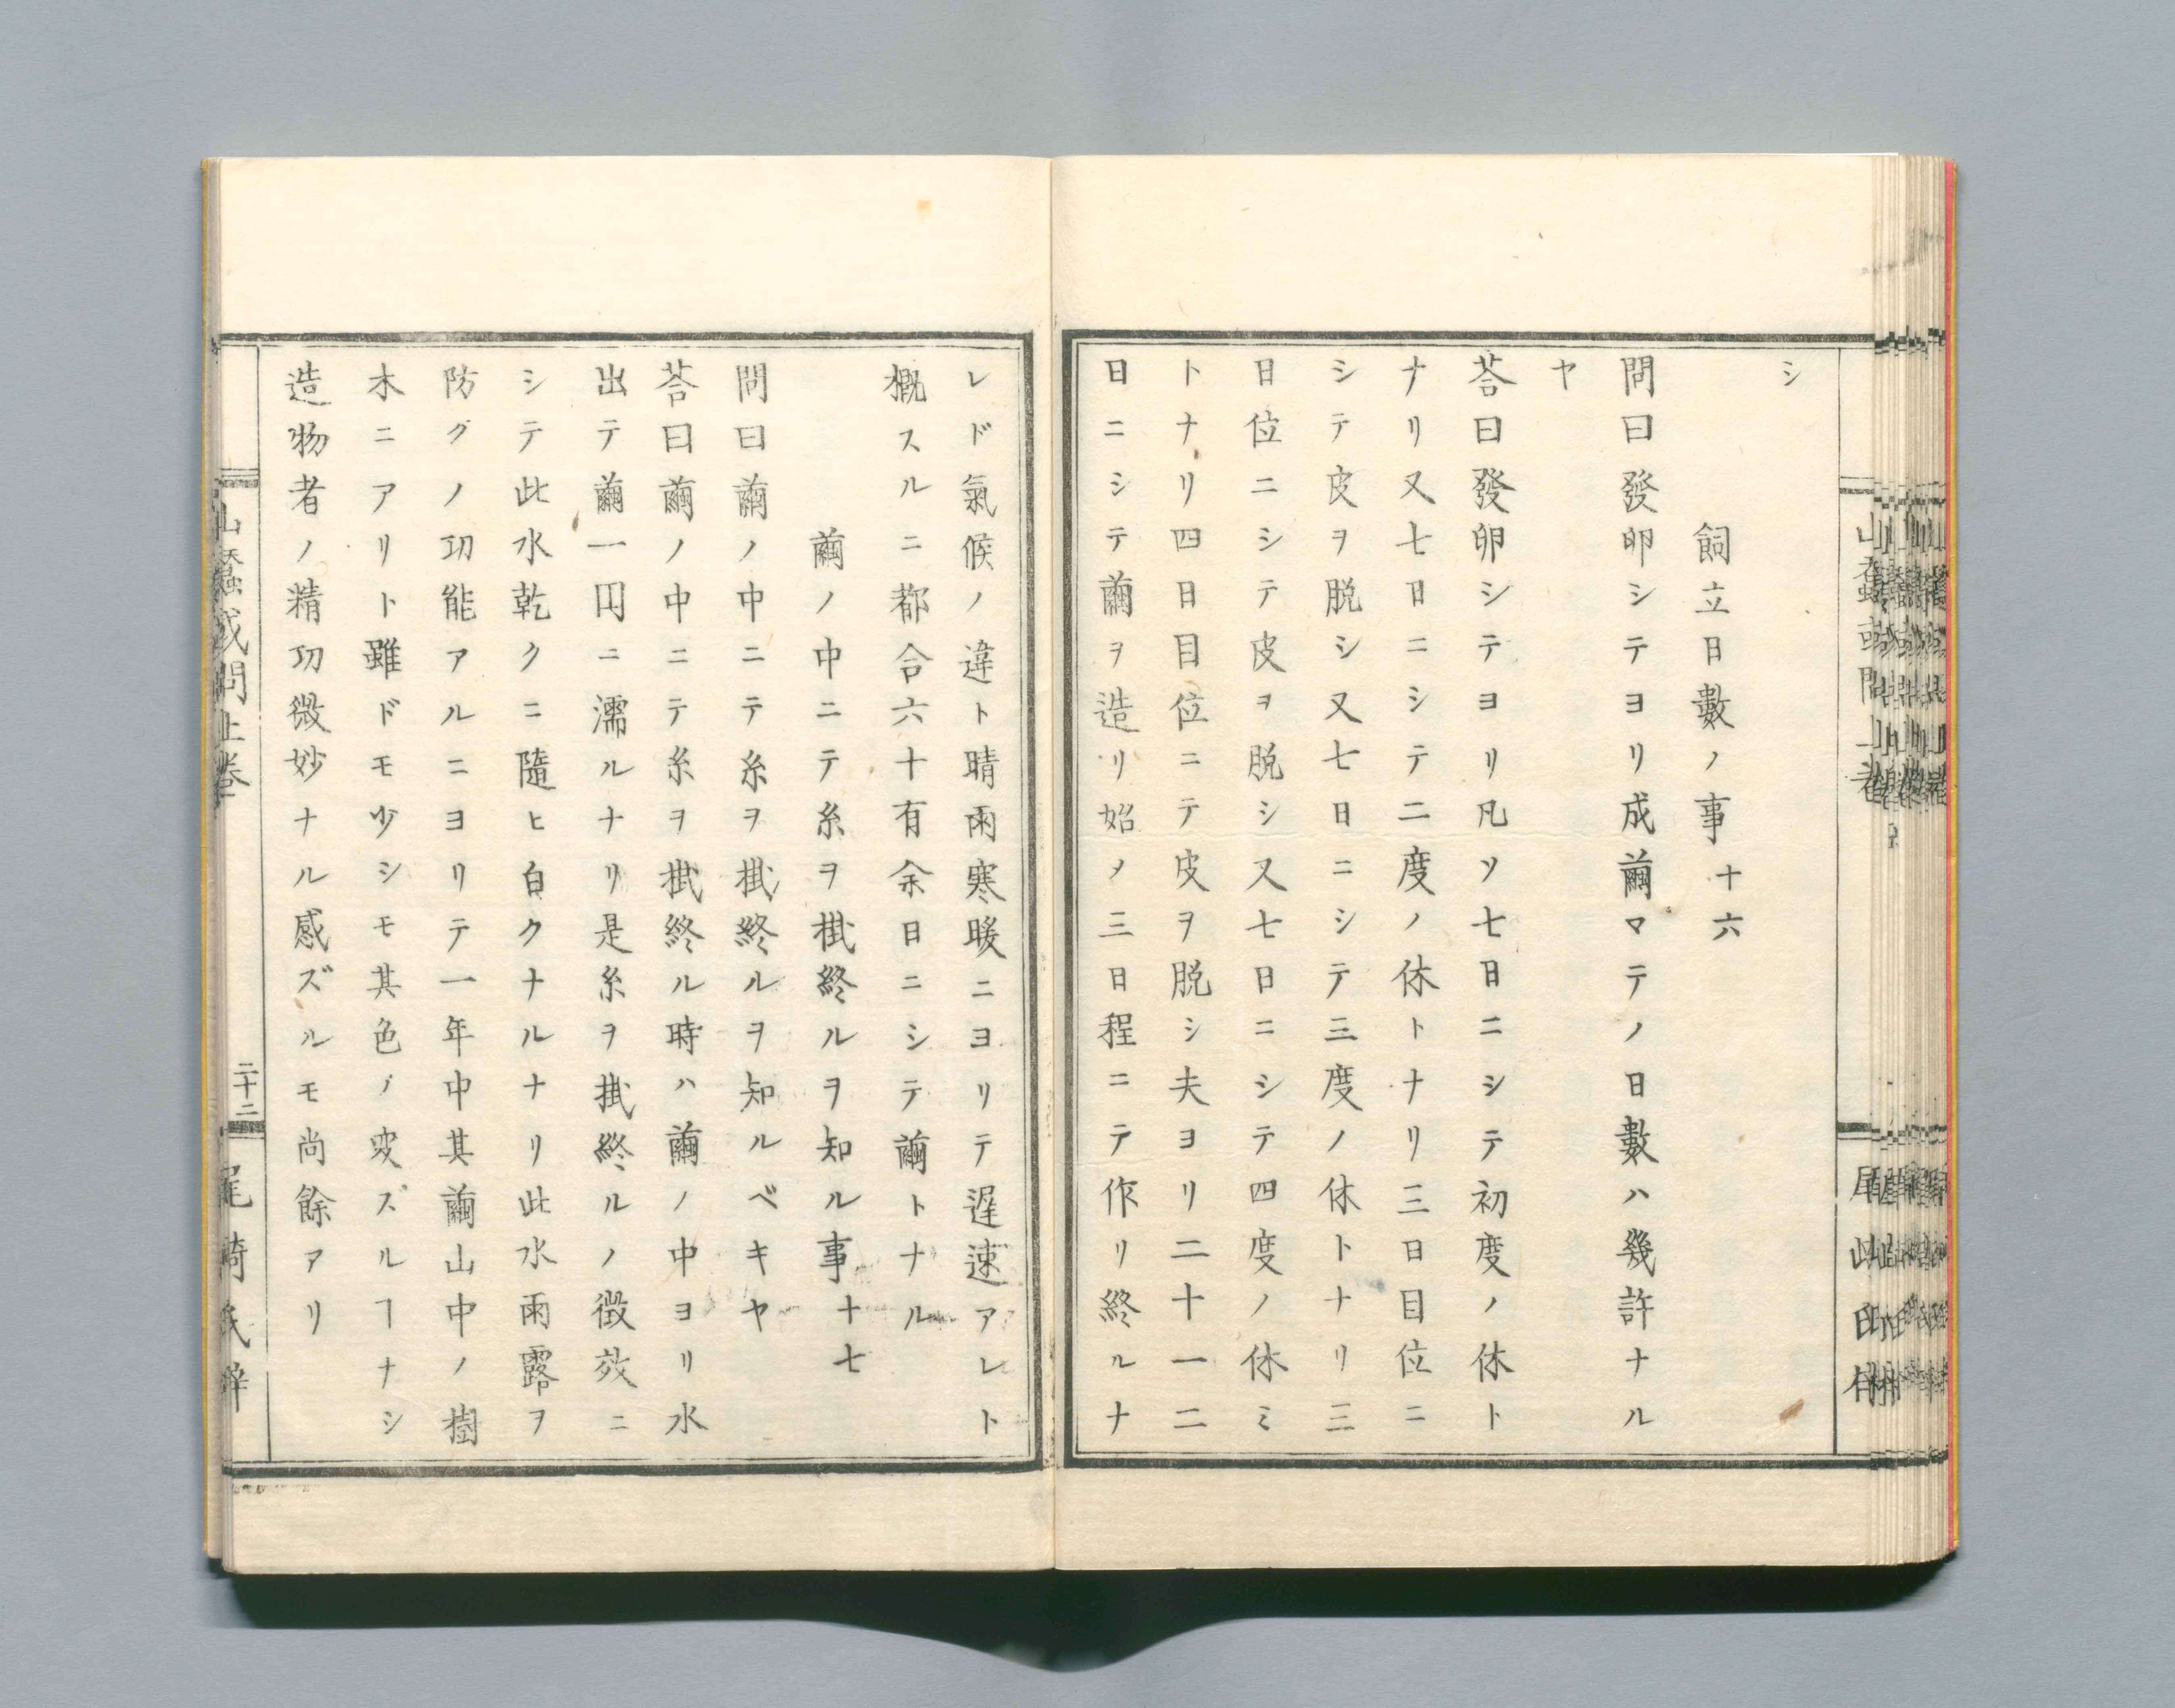 シ
飼立日數ノ事十六
問曰發卵シテヨリ成繭マテノ日數ハ幾許ナル
ヤ
荅曰發卵シテヨリ凡ソ七日ニシテ初度ノ休ト
ナリ又七日ニシテ二度ノ休トナリ三日目位ニ
シテ皮ヲ脱シ又七日ニシテ三度ノ休トナリ三
日位ニシテ皮ヲ脱シ又七日ニシテ四度ノ休ミ
トナリ四日目位ニテ皮ヲ脱シ夫ヨリ二十一二
日ニシテ繭ヲ造リ始メ三日程ニテ作リ終ルナ
レド氣候ノ違ト晴雨寒暖ニヨリテ遲速アレト
概スルニ都合六十有余日ニシテ繭トナル
繭ノ中ニテ糸ヲ掛終ルヲ知ル事十七
問曰繭ノ中ニテ糸ヲ掛終ルヲ知ルベキヤ
荅曰繭ノ中ニテ糸ヲ掛終ル時ハ繭ノ中ヨリ水
出テ繭一円ニ濡ルナリ是糸ヲ掛終ルノ徴效ニ
シテ此水乾クニ隨ヒ白クナルナリ此水雨露ヲ
防グノ功能アルニヨリテ一年中其繭山中ノ樹
木ニアリト雖ドモ少シモ其色ノ変ズルヿナシ
造物者ノ精功微妙ナル感ズルモ尚餘アリ
山蠶或問上巻
二十二